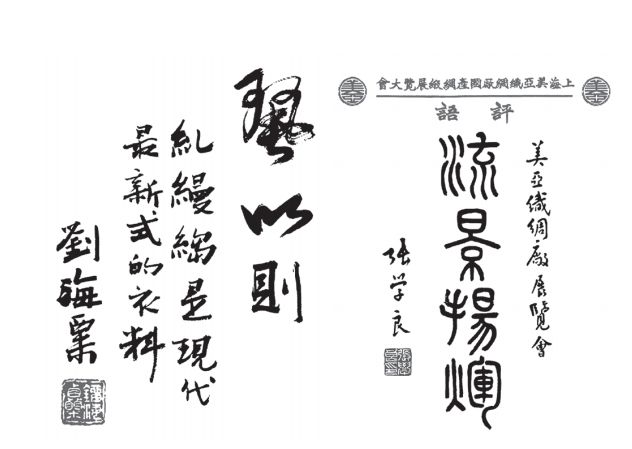 上海美亞織綢厰國產綢緞展覽大會
評語
美亞織綢廠展覽會
流景揚煇
張学良
以則
糺縵縐是現代
最新式的衣料
劉海粟